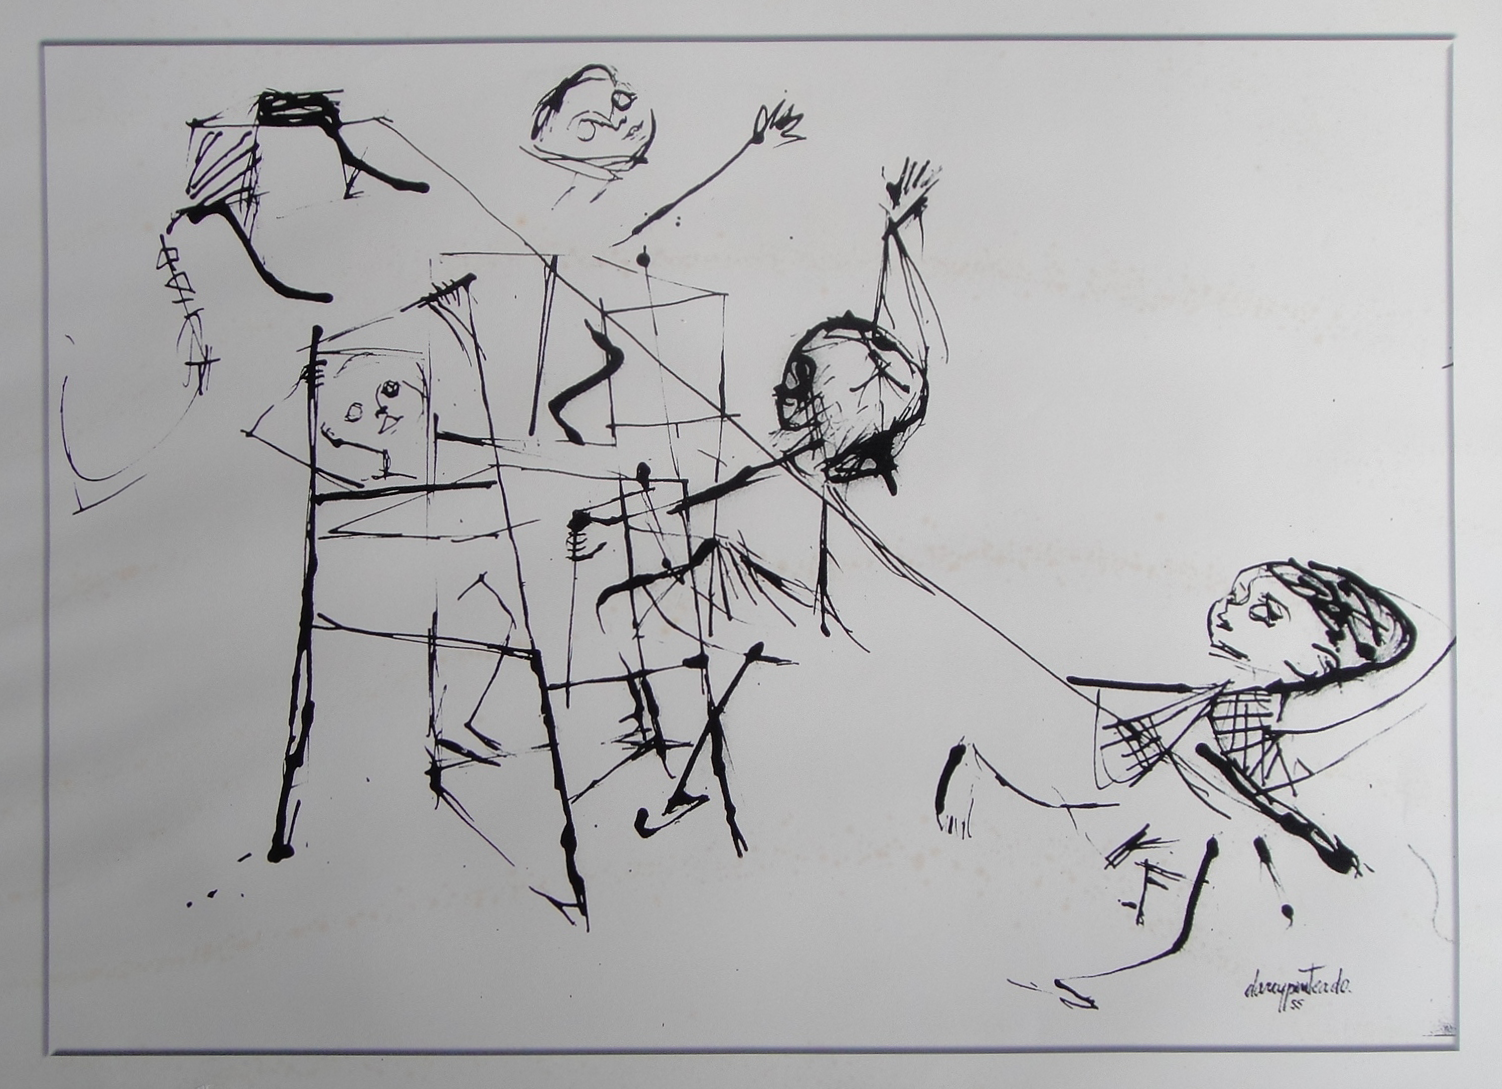 darcypenteado.
55